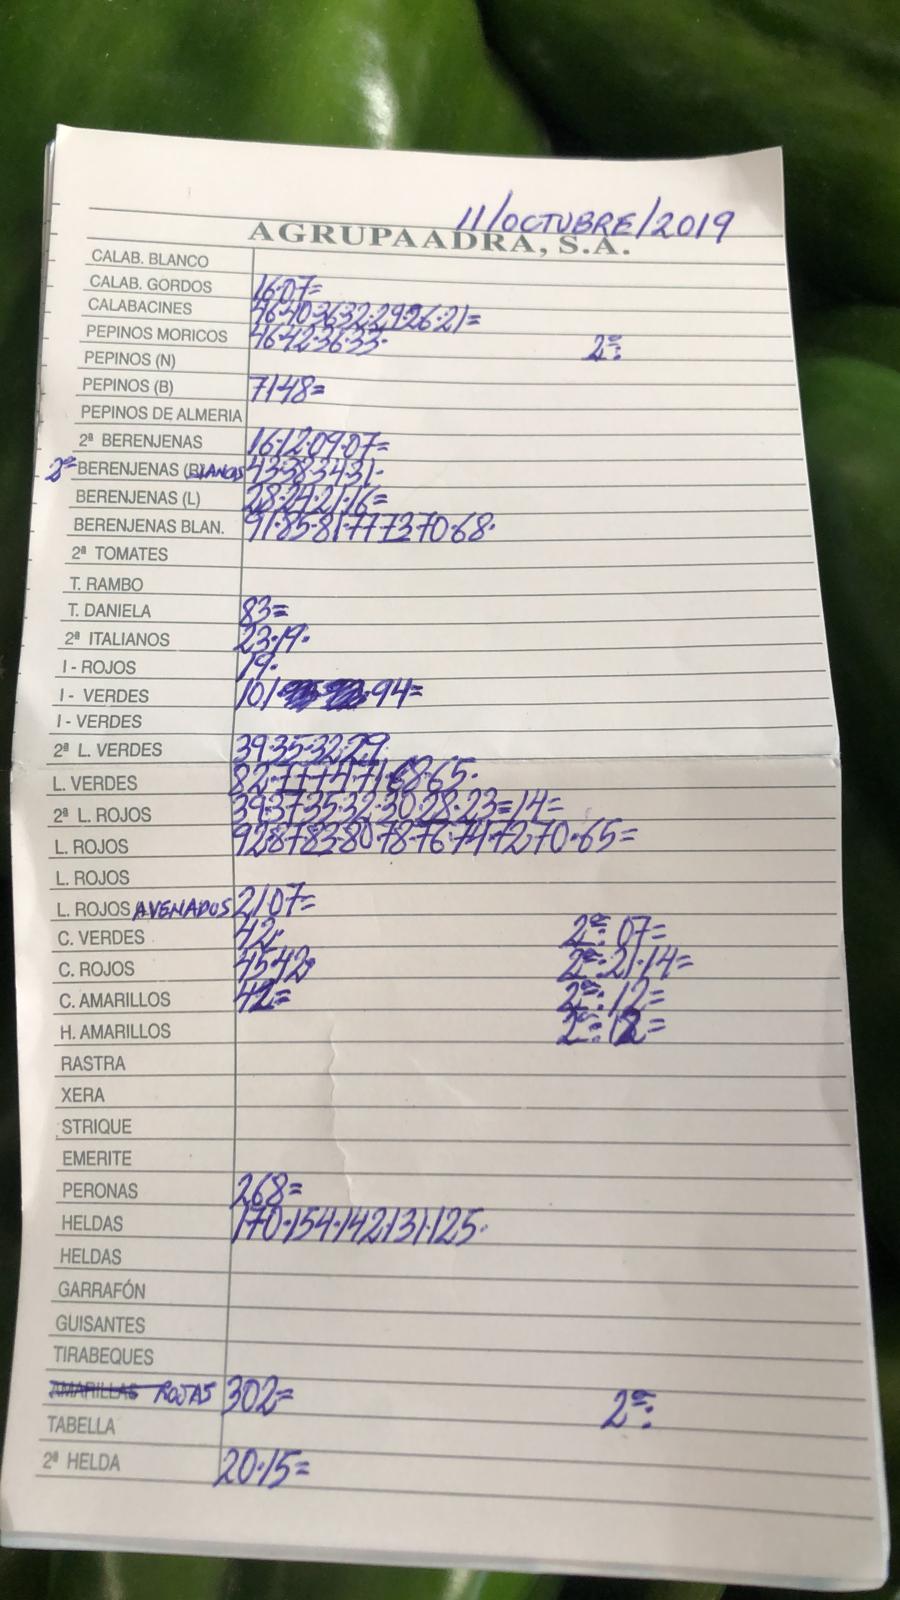 11/OCTUBRE/2019
AGRUPAADRA, S.A.
CALAB. BLANCO
CALAB. GORDOS 16·07=
CALABACINES 46·40·36·32·29·26·21=
PEPINOS MORICOS 46·42·36·33· 2ª:
PEPINOS (N)
PEPINOS (B) 71·48=
PEPINOS DE ALMERIA
2ª BERENJENAS 16·12·09·07=
2ª BERENJENAS (BLANCAS 43·38·34·31·
BERENJENAS (L) 28·24·21·16=
BERENJENAS BLAN. 91·85·81·77·73·70·68·
2ª TOMATES
T. RAMBO
T. DANIELA 83=
2ª ITALIANOS 23·19·
I - ROJOS 19·
I - VERDES 101 94=
I - VERDES
2ª L. VERDES 39·35·32·29·
L. VERDES 82·77·74·71·68·65·
2ª L. ROJOS 39·37·35·32·30·28·23=14=
L. ROJOS 92·87·83·80·78·76·74·72·70·65=
L. ROJOS
L. ROJOS AVENADOS 21·07=
C. VERDES 42· 2ª: 07=
C. ROJOS 45·42· 2ª: 21·14=
C. AMARILLOS 42= 2ª: 12=
H. AMARILLOS 2ª:
RASTRA
XERA
STRIQUE
EMERITE
PERONAS 268=
HELDAS 170·154·142·131·125·
HELDAS
GARRAFÓN
GUISANTES
TIRABEQUES
AMARILLAS ROJAS 302= 2ª:
TABELLA
2ª HELDA 20·15=